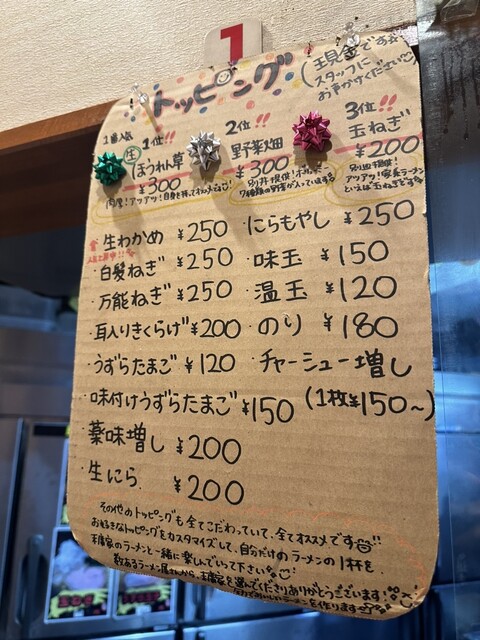 1
トッピング
(現金です☆
スタッフに
お声かけください)
1番人気
1位!!
生
ほうれん草
¥300
2位!!
野菜畑
¥300
別丼提供!
7種類の野菜が入っています
3位!!
玉ねぎ
¥200
別皿提供!
アツアツ!家系ラーメン
といえば玉ねぎです
・生わかめ ¥250
・白髪ねぎ ¥250
・万能ねぎ ¥250
・耳入りきくらげ ¥200
・うずらたまご ¥120
・味付けうずらたまご ¥150
・薬味増し ¥200
・生にら ¥200
・にらもやし ¥250
・味玉 ¥150
・温玉 ¥120
・のり ¥180
・チャーシュー増し
(1枚¥150~)
その他のトッピングも全てこだわっていて、全てオススメです!!
お好きなトッピングをカスタマイズして、自分だけのラーメンの1杯を
家のラーメンと一緒に楽しんでいって下さい
数あるラーメン屋さんから、家を選んでくださりありがとうございます!